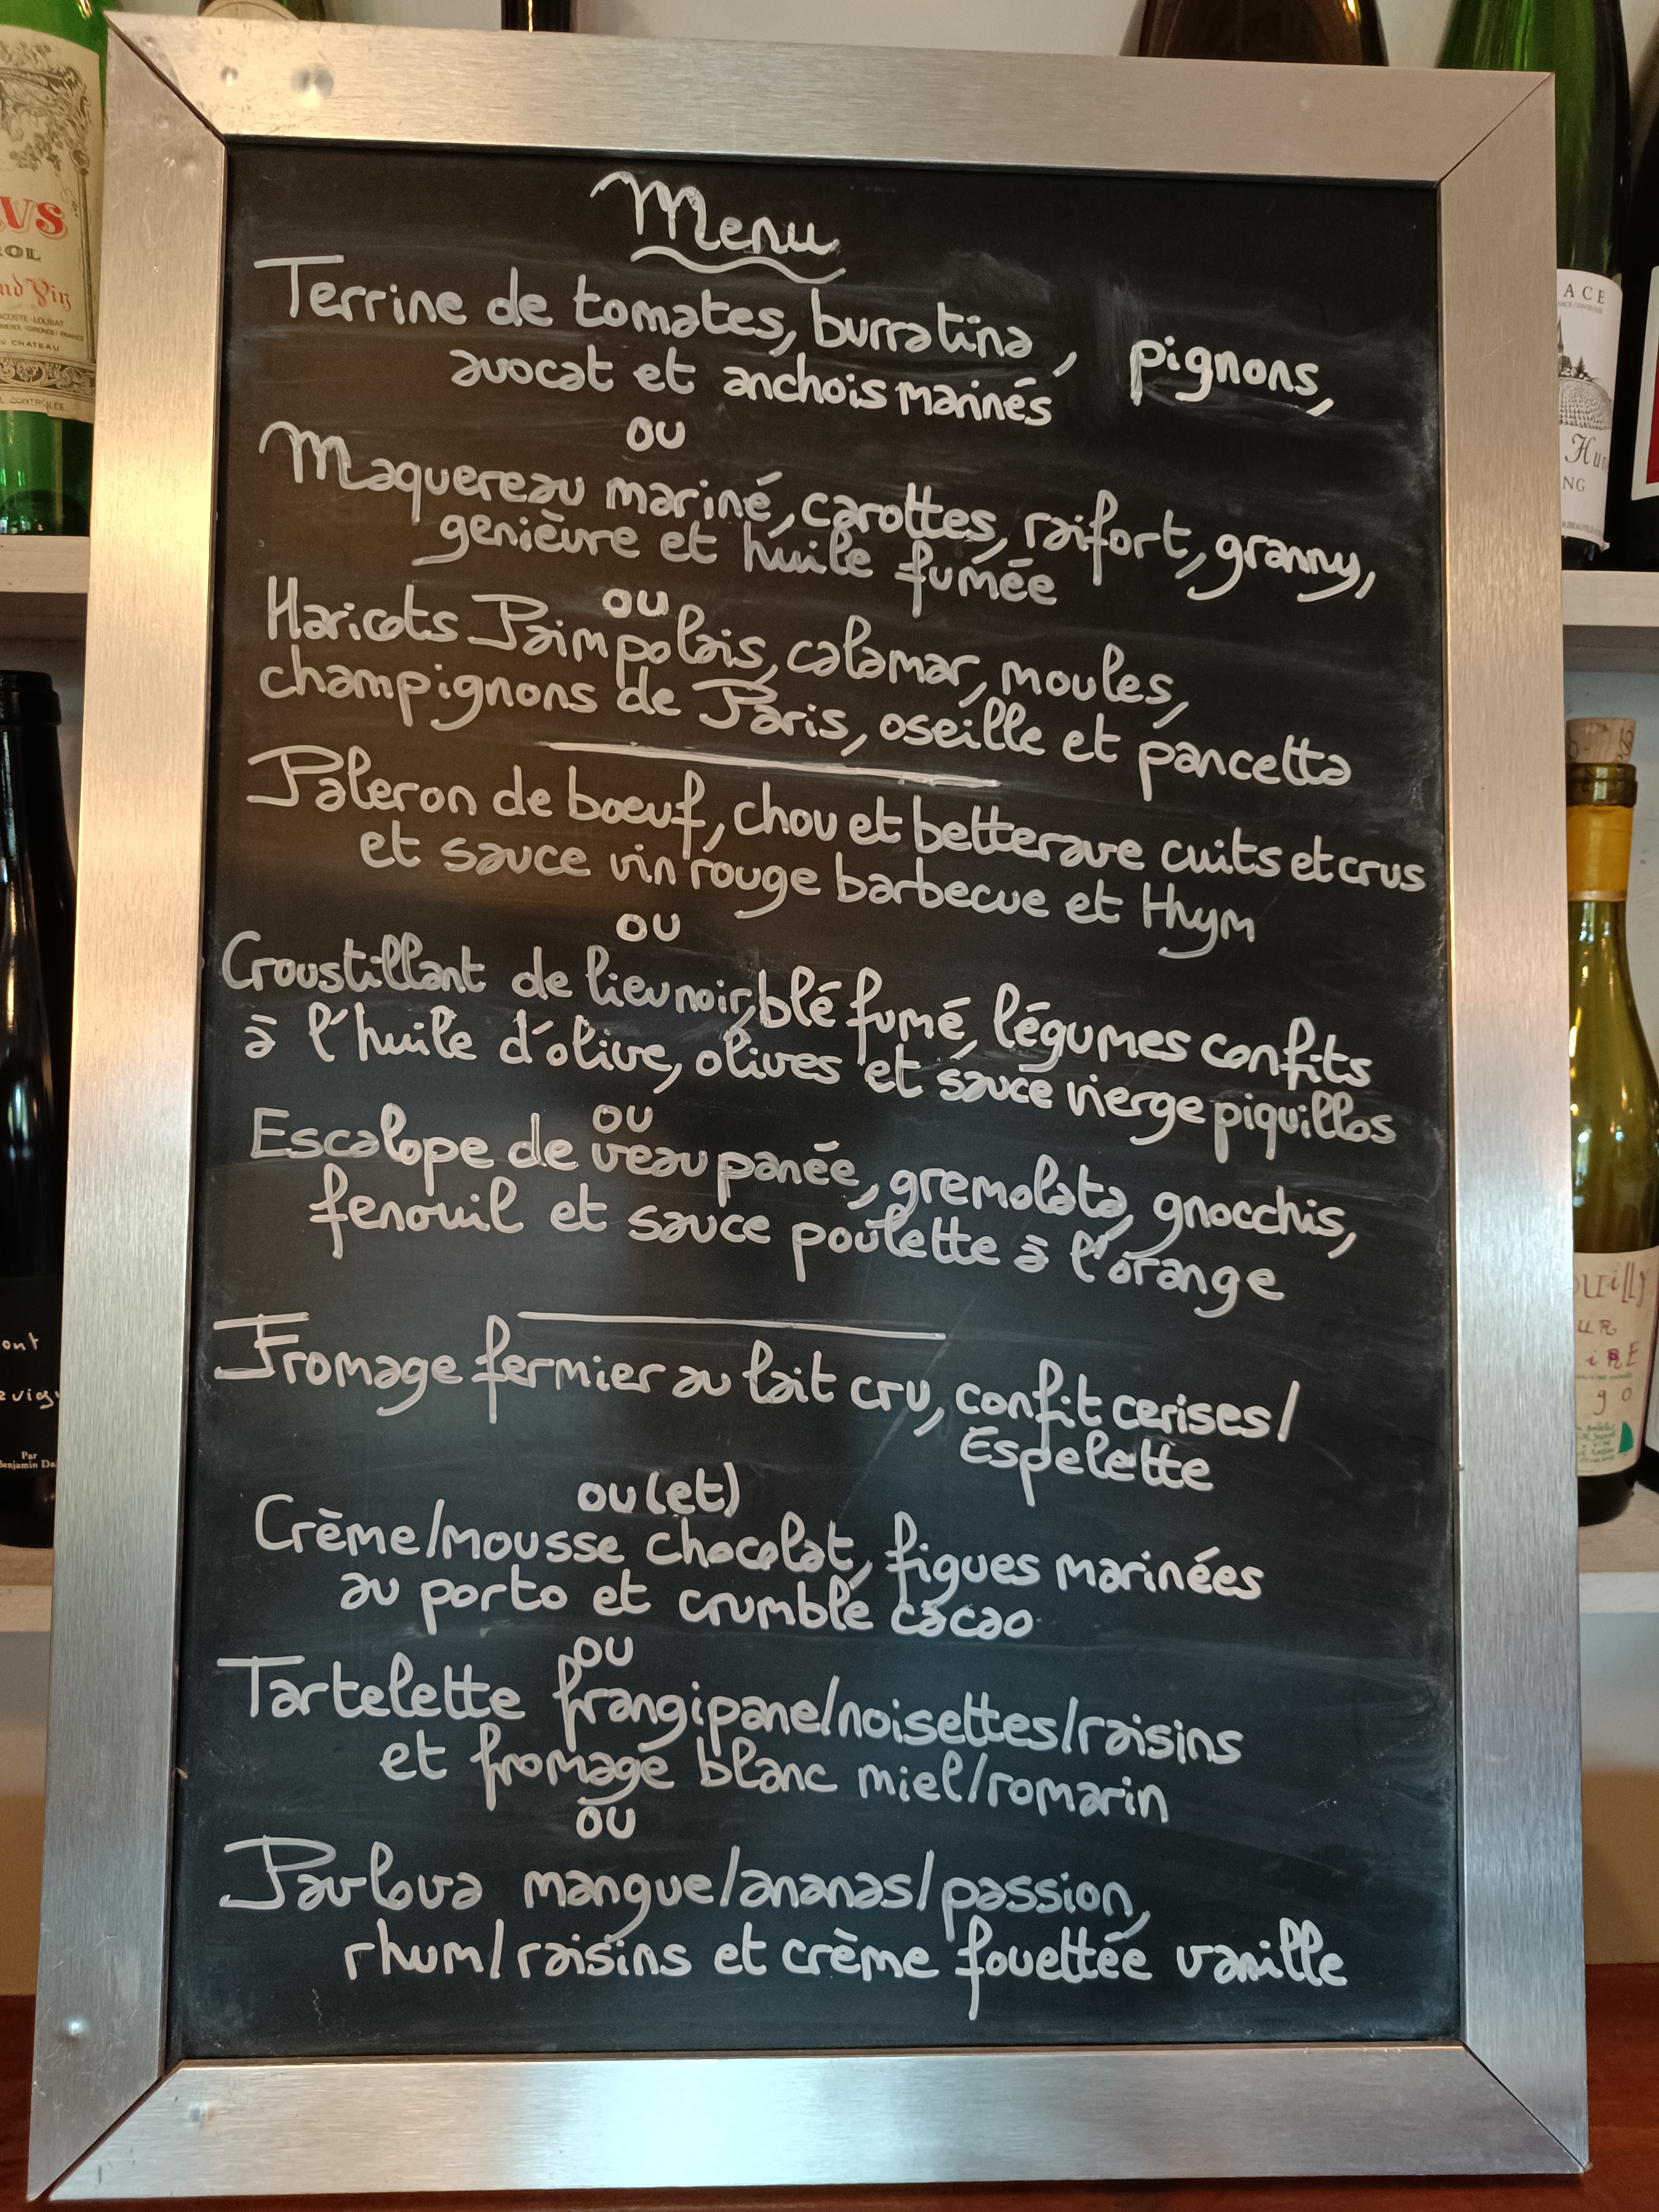 Menu
Terrine de tomates, burratina, pignons,
avocat et anchois marinés
ou
Maquereau mariné, carottes, raifort, granny,
genièvre et huile fumée
ou
Haricots Paimpolais, calamar, moules,
champignons de Paris, oseille et pancetta
Paleron de boeuf, chou et betterave cuits et crus
et sauce vin rouge barbecue et thym
ou
Croustillant de lieu noir, blé fumé, légumes confits
à l'huile d'olive, olives et sauce vierge piquillos
ou
Escalope de veau panée, gremolata, gnocchis,
fenouil et sauce poulette à l'orange
Fromage fermier au lait cru, confit cerises/
Espelette
ou (et)
Crème/mousse chocolat, figues marinées
au porto et crumble cacao
ou
Tartelette frangipane/noisettes/raisins
et fromage blanc miel/romarin
ou
Pavlova mangue/ananas/passion,
rhum/raisins et crème fouettée vanille
VS
OL
nd Vin
ACOSTE-LOUBAT
CHATEAU
ACE
Hun
NG
ont
Par
Benjamin Da
ouilly
UR
iRE
90